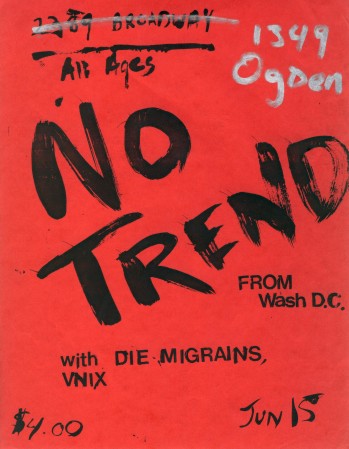 2209 BROADWAY
1549
Ogden
All Ages
NO
TREND
FROM
Wash D.C.
with DIE MIGRAINS,
VNIX
$4.00
JUN 15